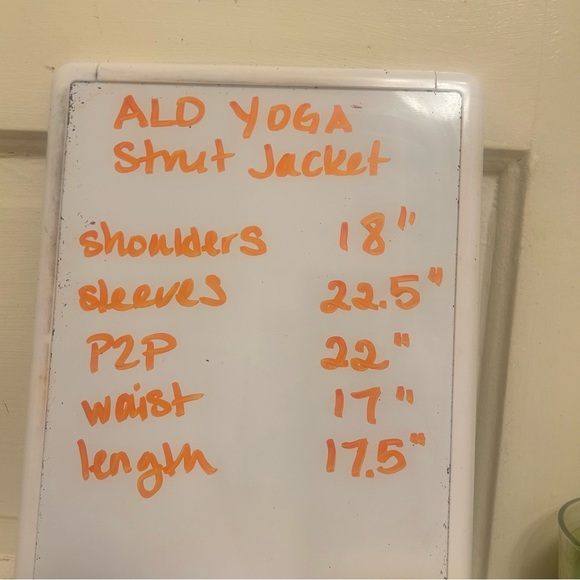 ALO YOGA
Strut Jacket
shoulders 18"
sleeves 22.5"
P2P 22"
waist 17"
length 17.5"